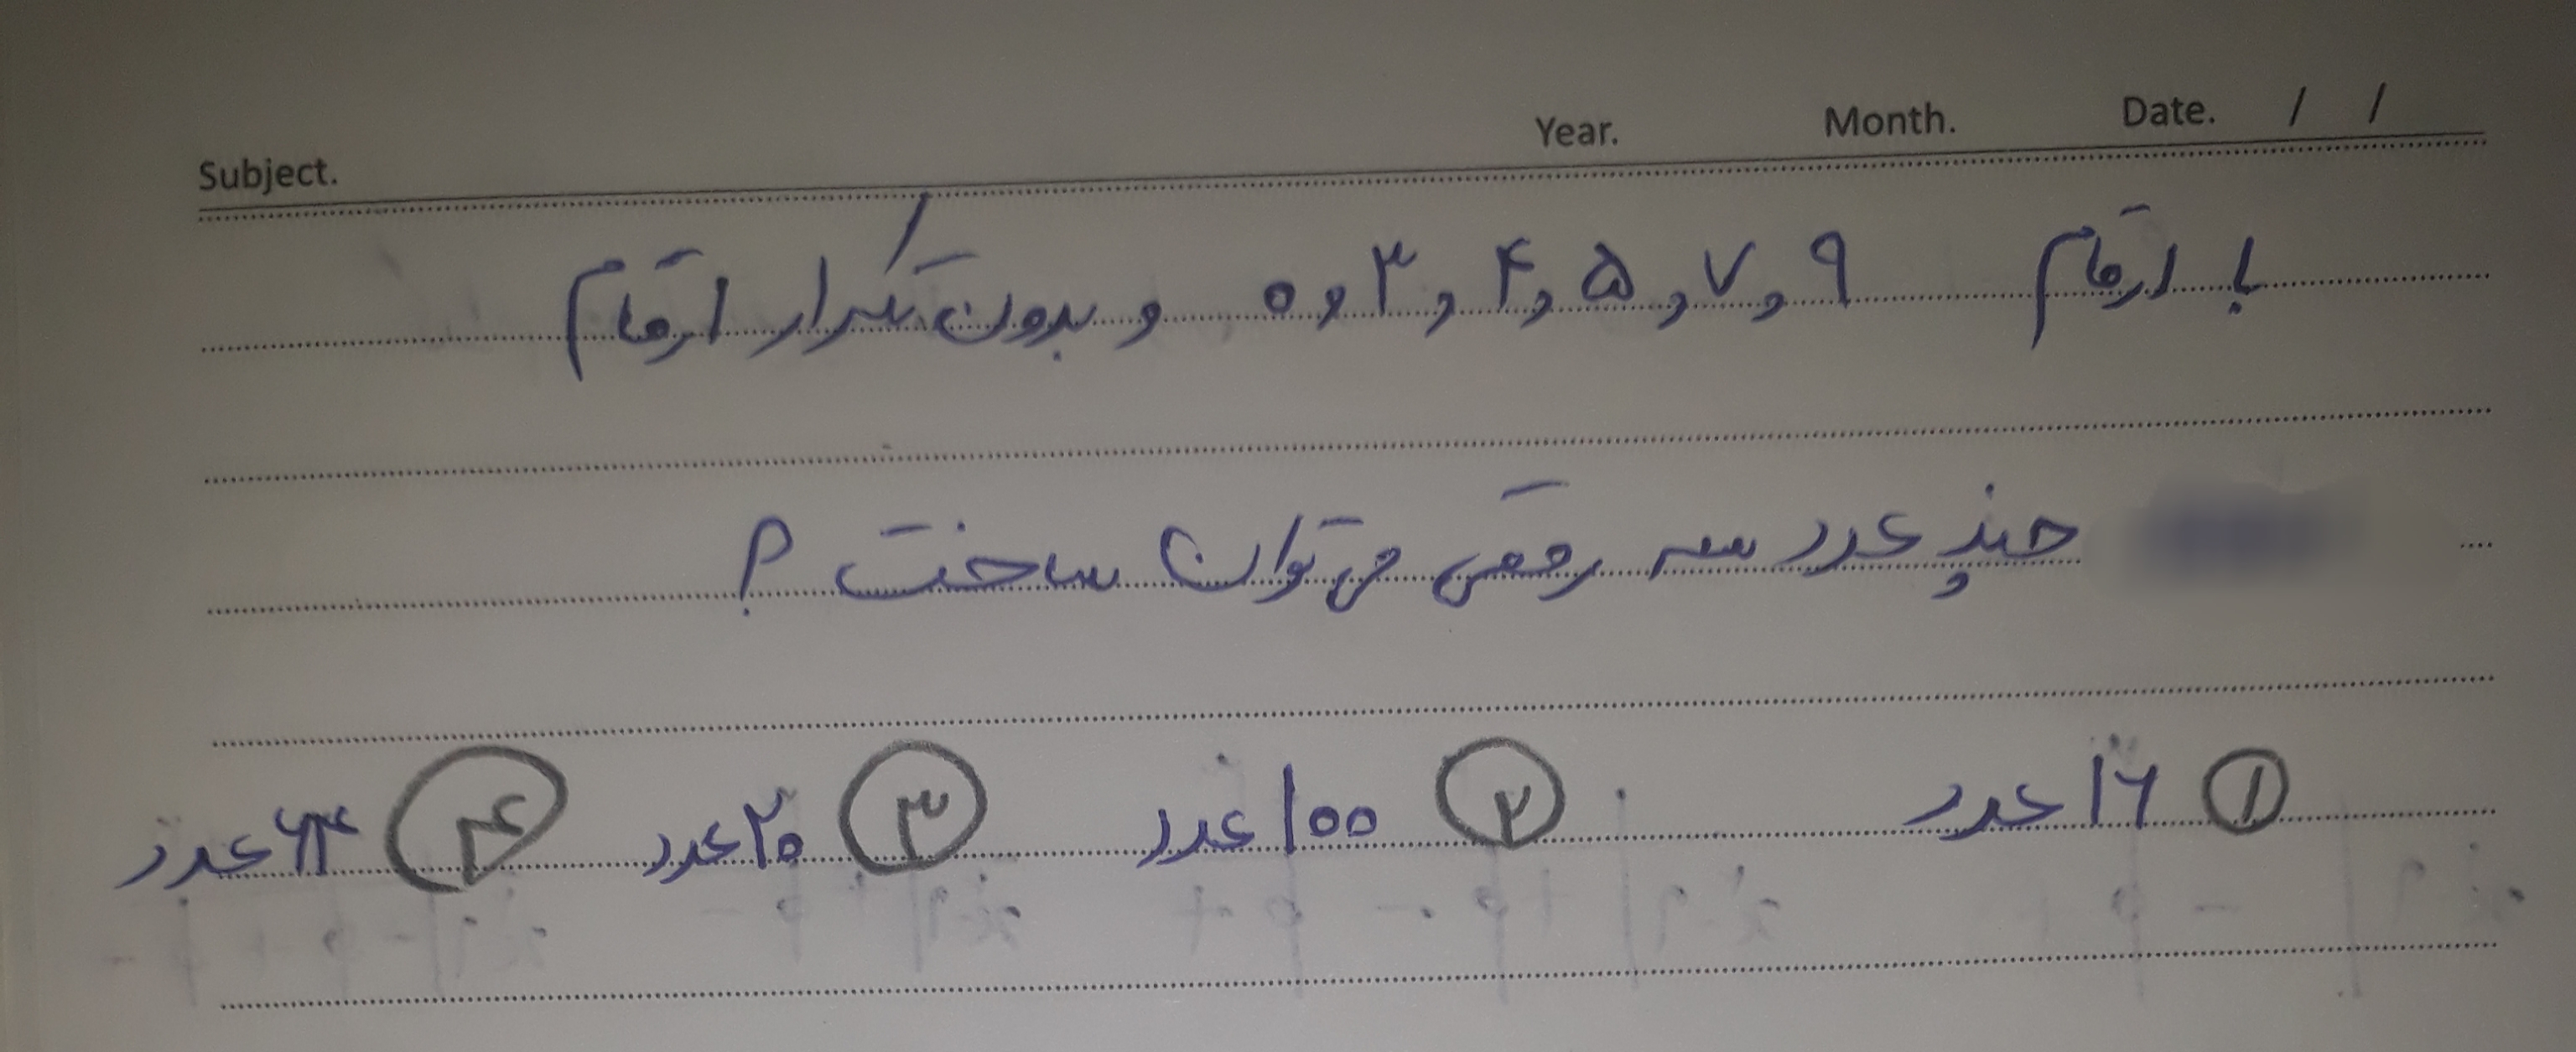 Subject. Year. Month. Date. / /
با ارقام ۹ و ۷ و ۵ و ۴ و ۳ و ۰ و بدون تکرار ارقام
چند عدد سه رقمی می توان ساخت ؟
۱ ۱۶ عدد ۲ ۱۰۰ عدد ۳ ۲۰ عدد ۴ ۶۴ عدد